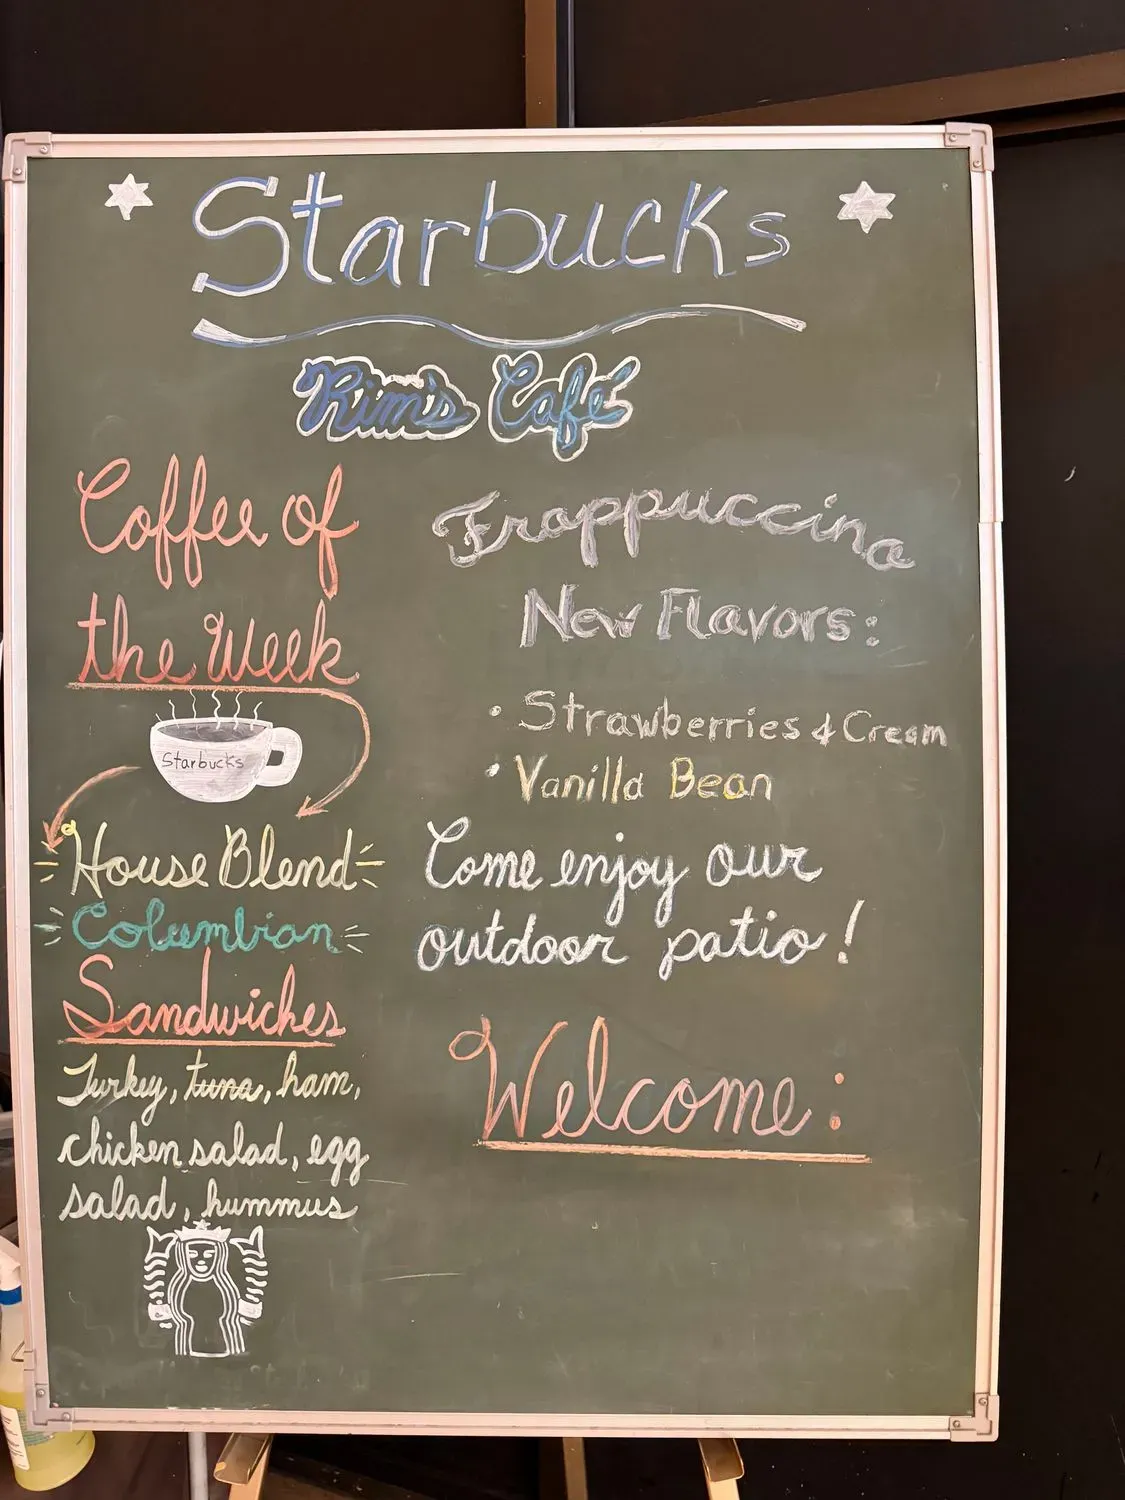 Starbucks
Rim's Café
Coffee of
the Week
Starbucks
House Blend
Columbian
Sandwiches
Turkey, tuna, ham,
chicken salad, egg
salad, hummus
Frappuccino
New Flavors:
• Strawberries & Cream
• Vanilla Bean
Come enjoy our
outdoor patio!
Welcome: